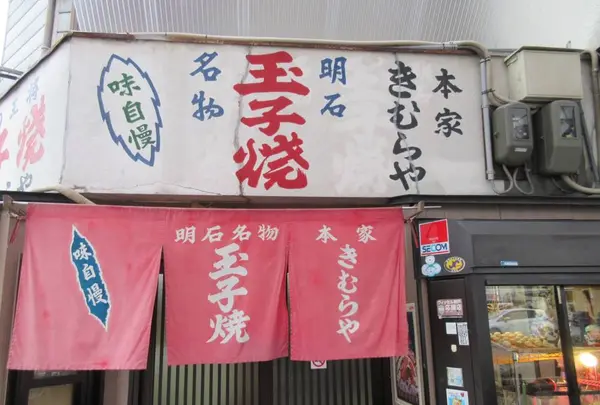 本家
きむらや
明石
名物
玉子焼
味自慢
本家
きむらや
明石名物
玉子焼
味自慢
SECOM